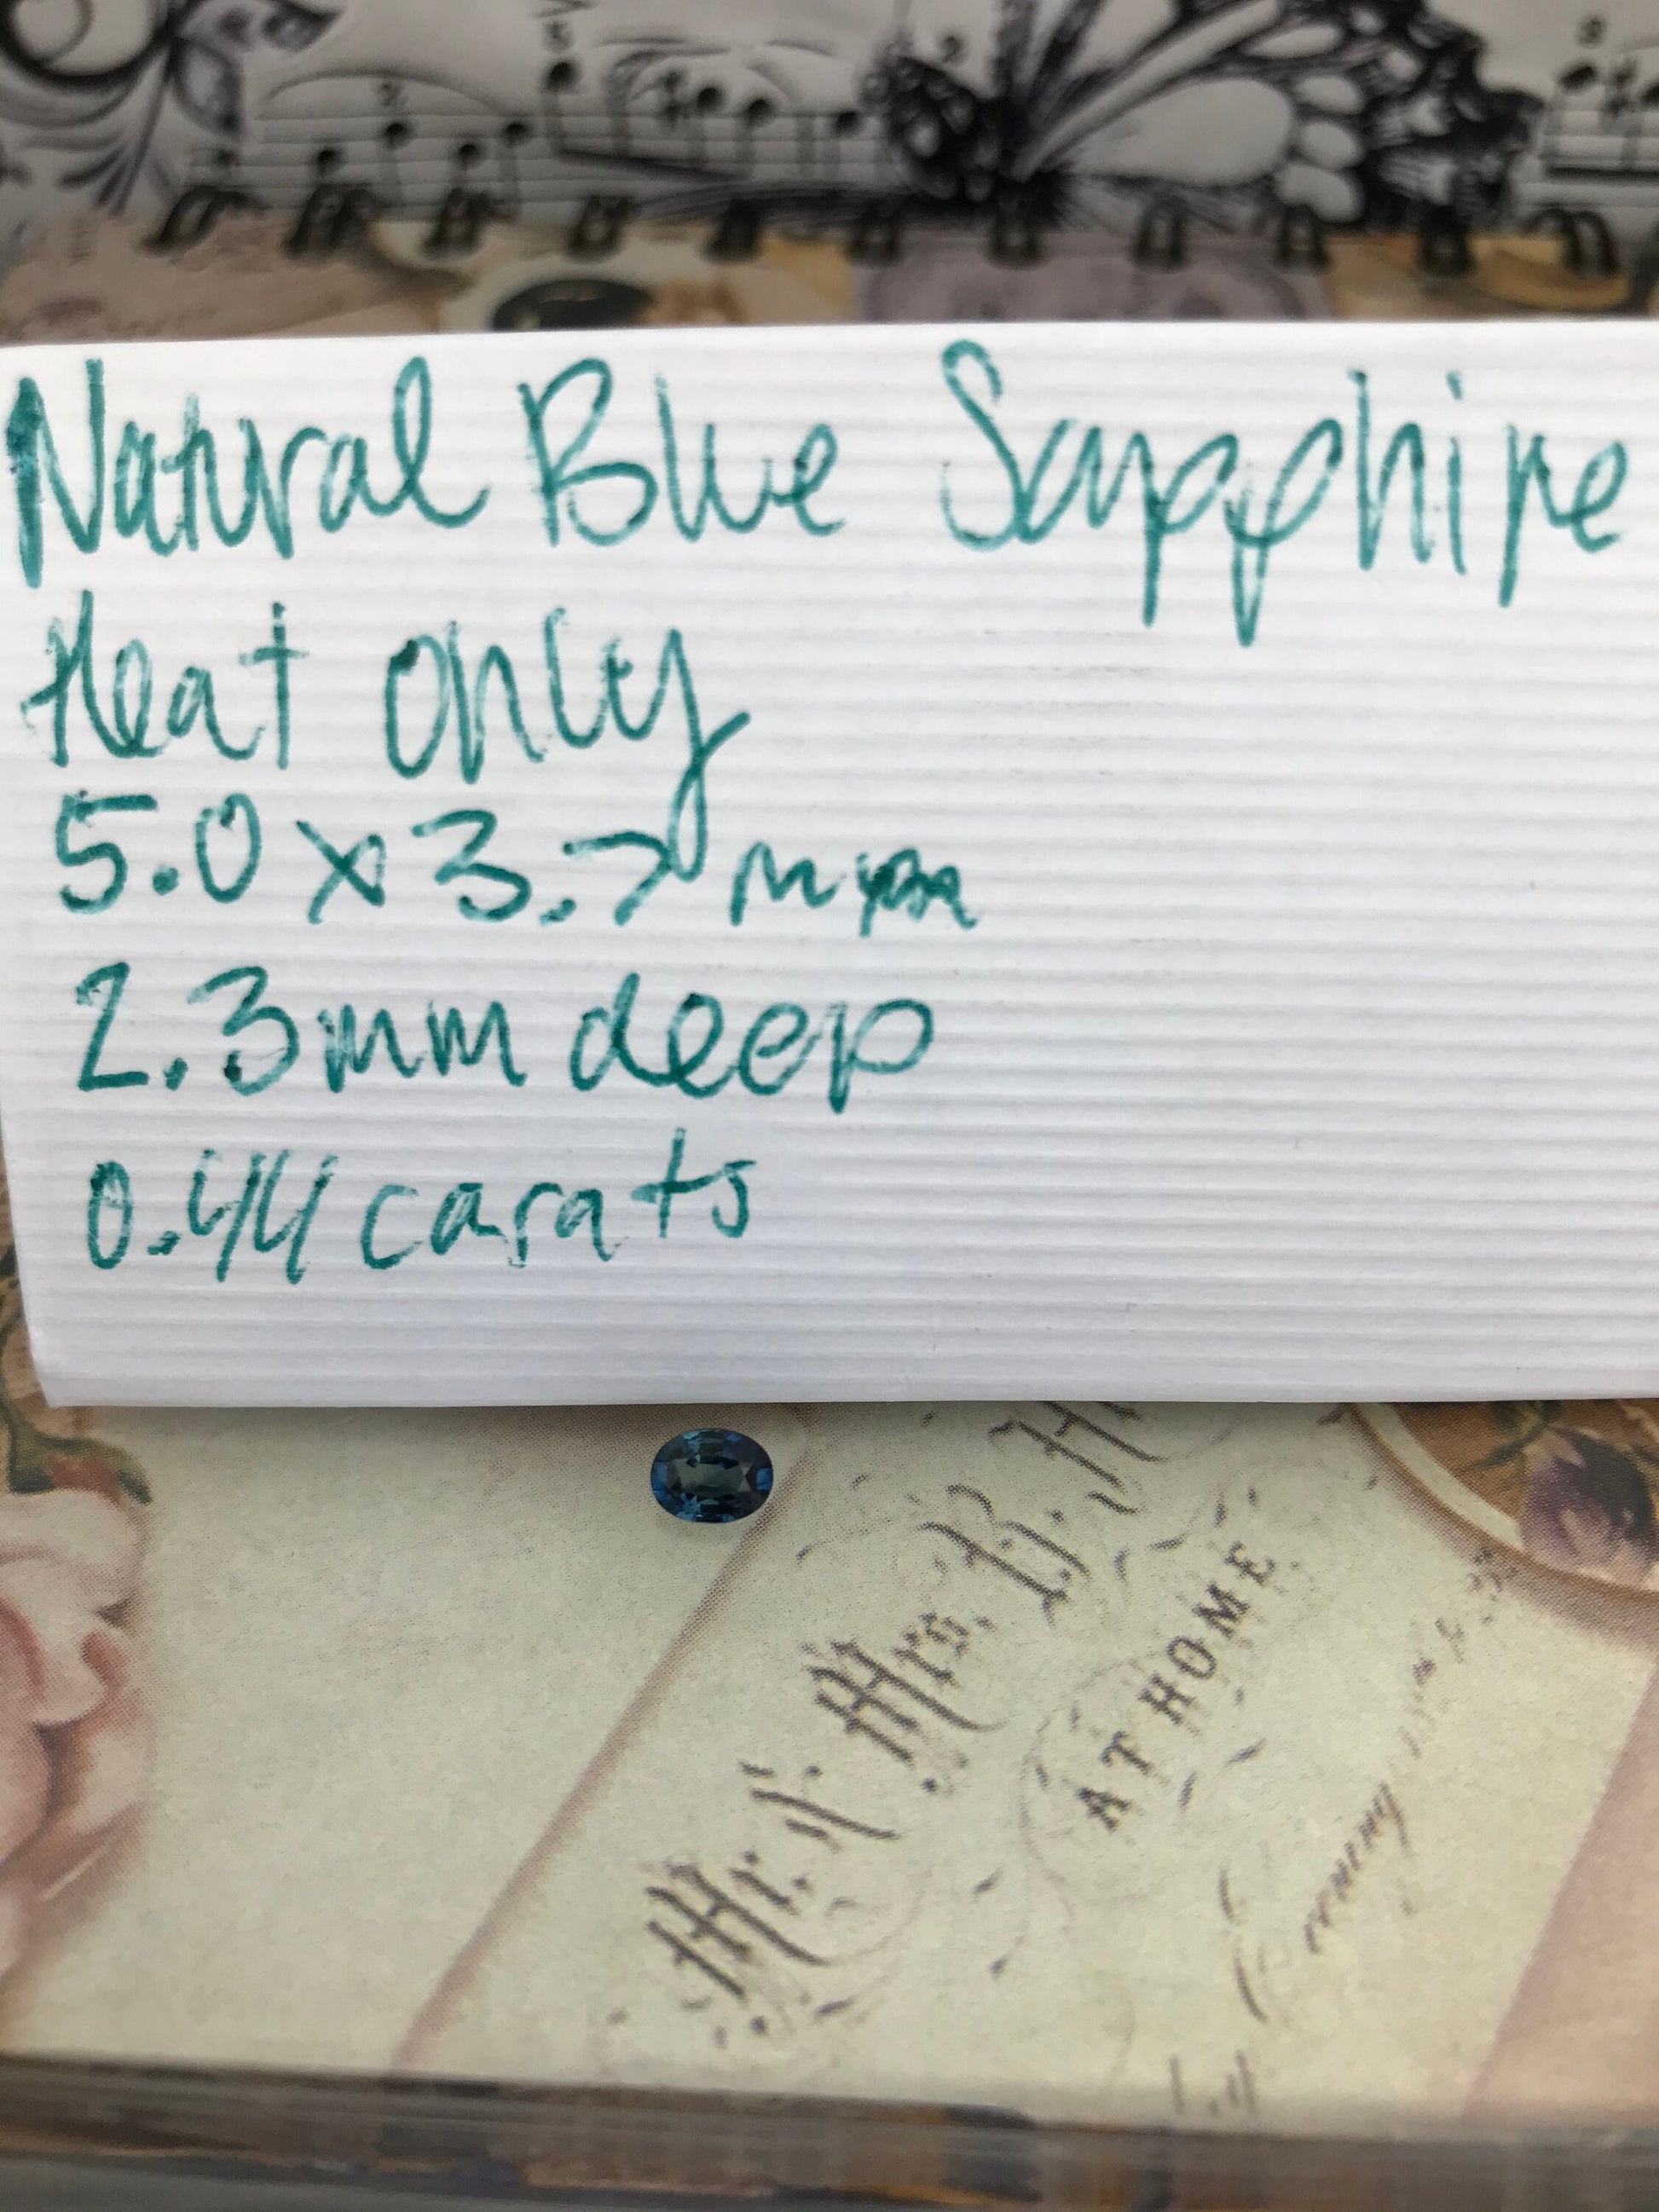 Natural Blue Sapphire
Heat only
5.0 x 3.7 mm
2.3mm deep
0.44 carats
Mr. & Mrs. B. H
AT HOME